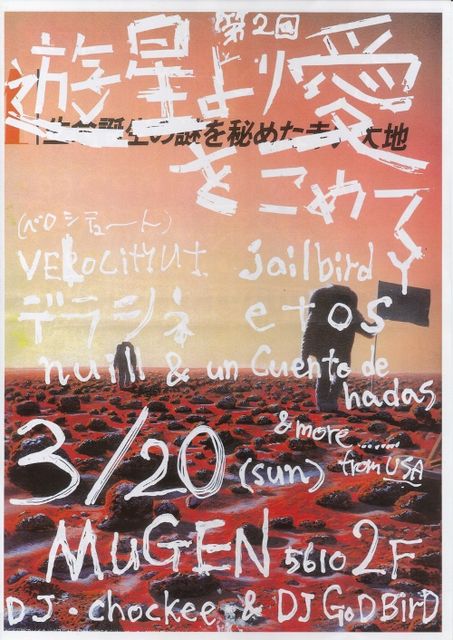 第2回
遊星より愛
をこめて
生命誕生の謎を秘めた赤い大地
(ベロシチューん)
jailbird Y
デラシネ etos
nuill & un Cuento de
hadas
& more ......
from USA
3/20 (sun)
MuGEN 5610 2F
DJ・chockee & DJ GoDBirD